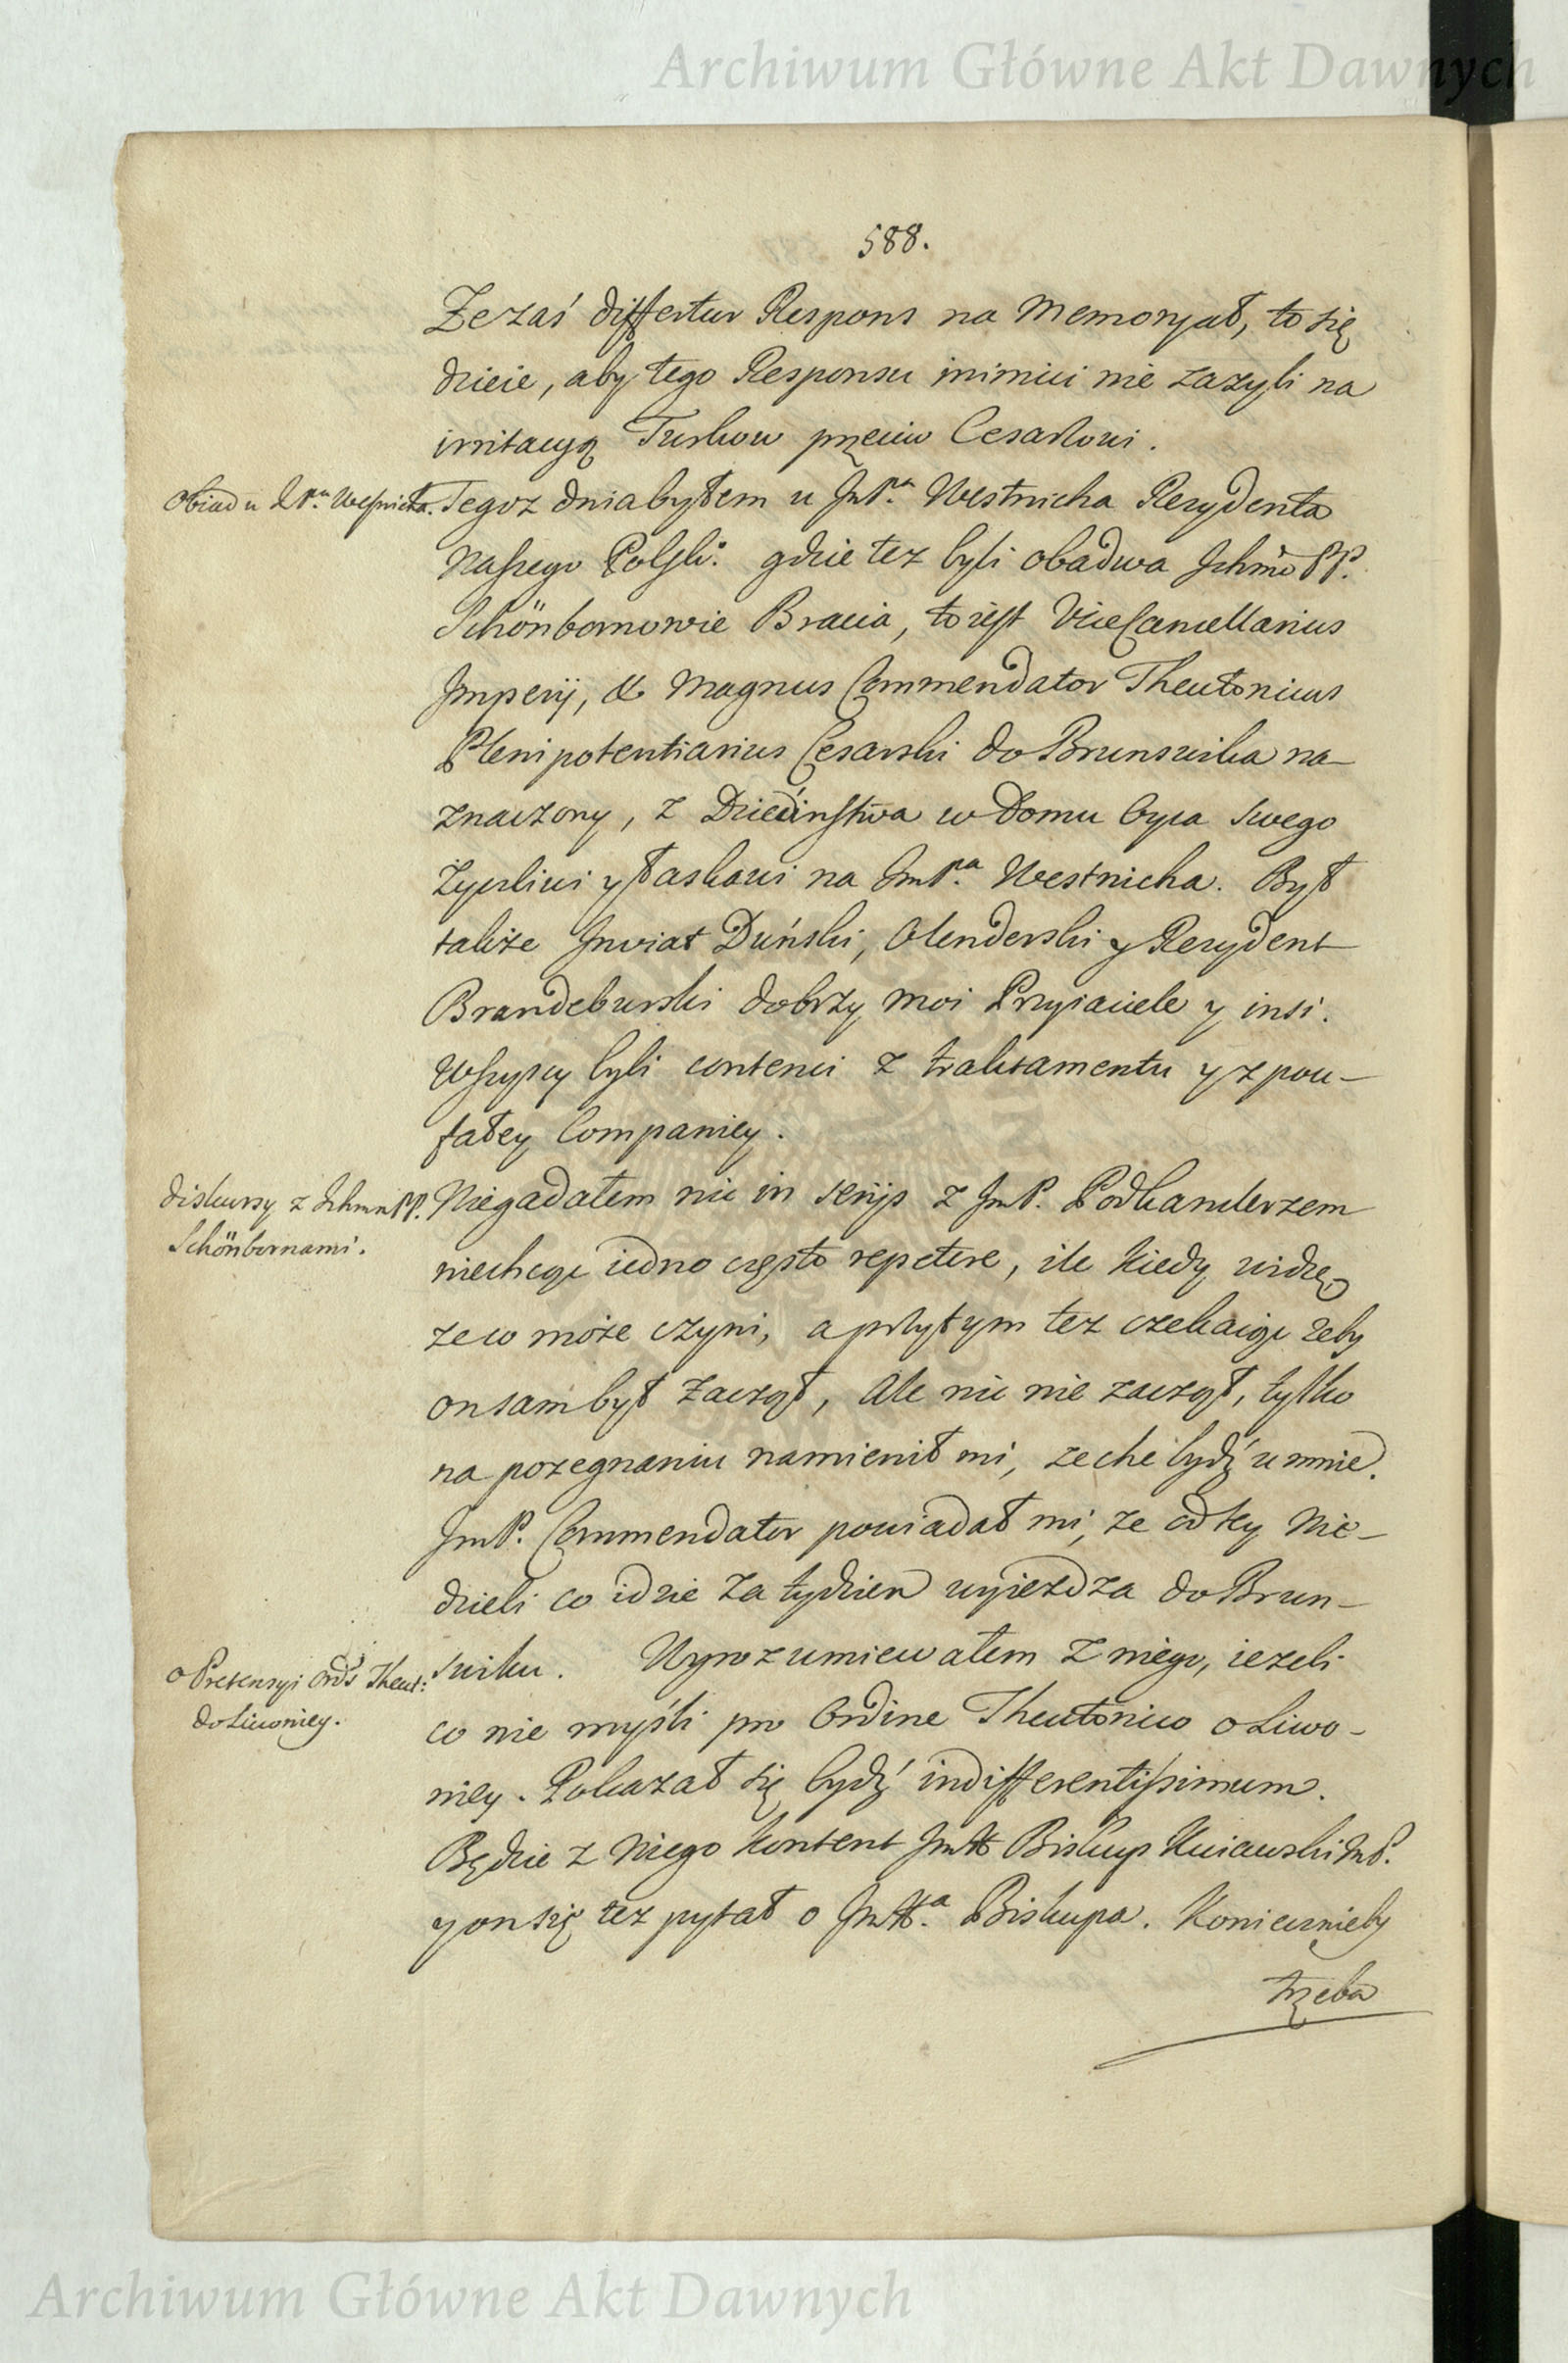 Archiwum Główne Akt Dawnych
588.
Ze zaś differtur Respons na Memoryał, to się
dzieie, aby tego Responsu inimici nie zazyli na
irritacyą Turkow przeciw Cesarzowi.
Obiad u J P.ª Wesnicha.
Tegoz dnia byłem u JmP.ª Westnicha Rezydenta
naszego Polski: gdzie tez byli obadwa Jchmć PP.
Schönbornowie Bracia, to iest ViceCancellarius
Imperij, & Magnus Commendator Theutonicus
Plenipotentiarius Cesarski do Brunswika na-
znaczony, z Dzieciństwa w Domu Oyca swego
życzliwi y łaskawi na JmP.ª Westnicha. Był
także Inviat Duński, Olenderski y Rezydent
Brandeburski dobrzy moi Przyiaciele y insi.
Wszyscy byli contenci z traktamentu y z pou-
fałey Companiey.
Diskursy z Jchmć PP.
Schönbornami.
Niegadałem nic in serijs z JmP. Podkanclerzem
niechcąc iedno często repetere, ile kiedy widzę,
ze co może czyni, a przytym tez czekaiąc żeby
on sam był zaczął, Ale nic nie zaczął, tylko
na pozegnaniu namienił mi, ze chce bydź u mnie.
JmP. Commendator powiadał mi, ze od tey Nie-
dzieli co idzie za tydzien wyiezdza do Brun-
swiku. Wyrozumiewałem z niego, iezeli
o Pretensyi Ord's Theut:
do Liwoniey.
co nie myśli pro Ordine Theutonico o Liwo-
niey. Pokazał się bydź indifferentissimum.
Będzie z niego kontent JmX Biskup Kuiawski JmP.
y on się tez pytał o JmX.ª Biskupa. Koniecznieby
trzeba
Archiwum Główne Akt Dawnych